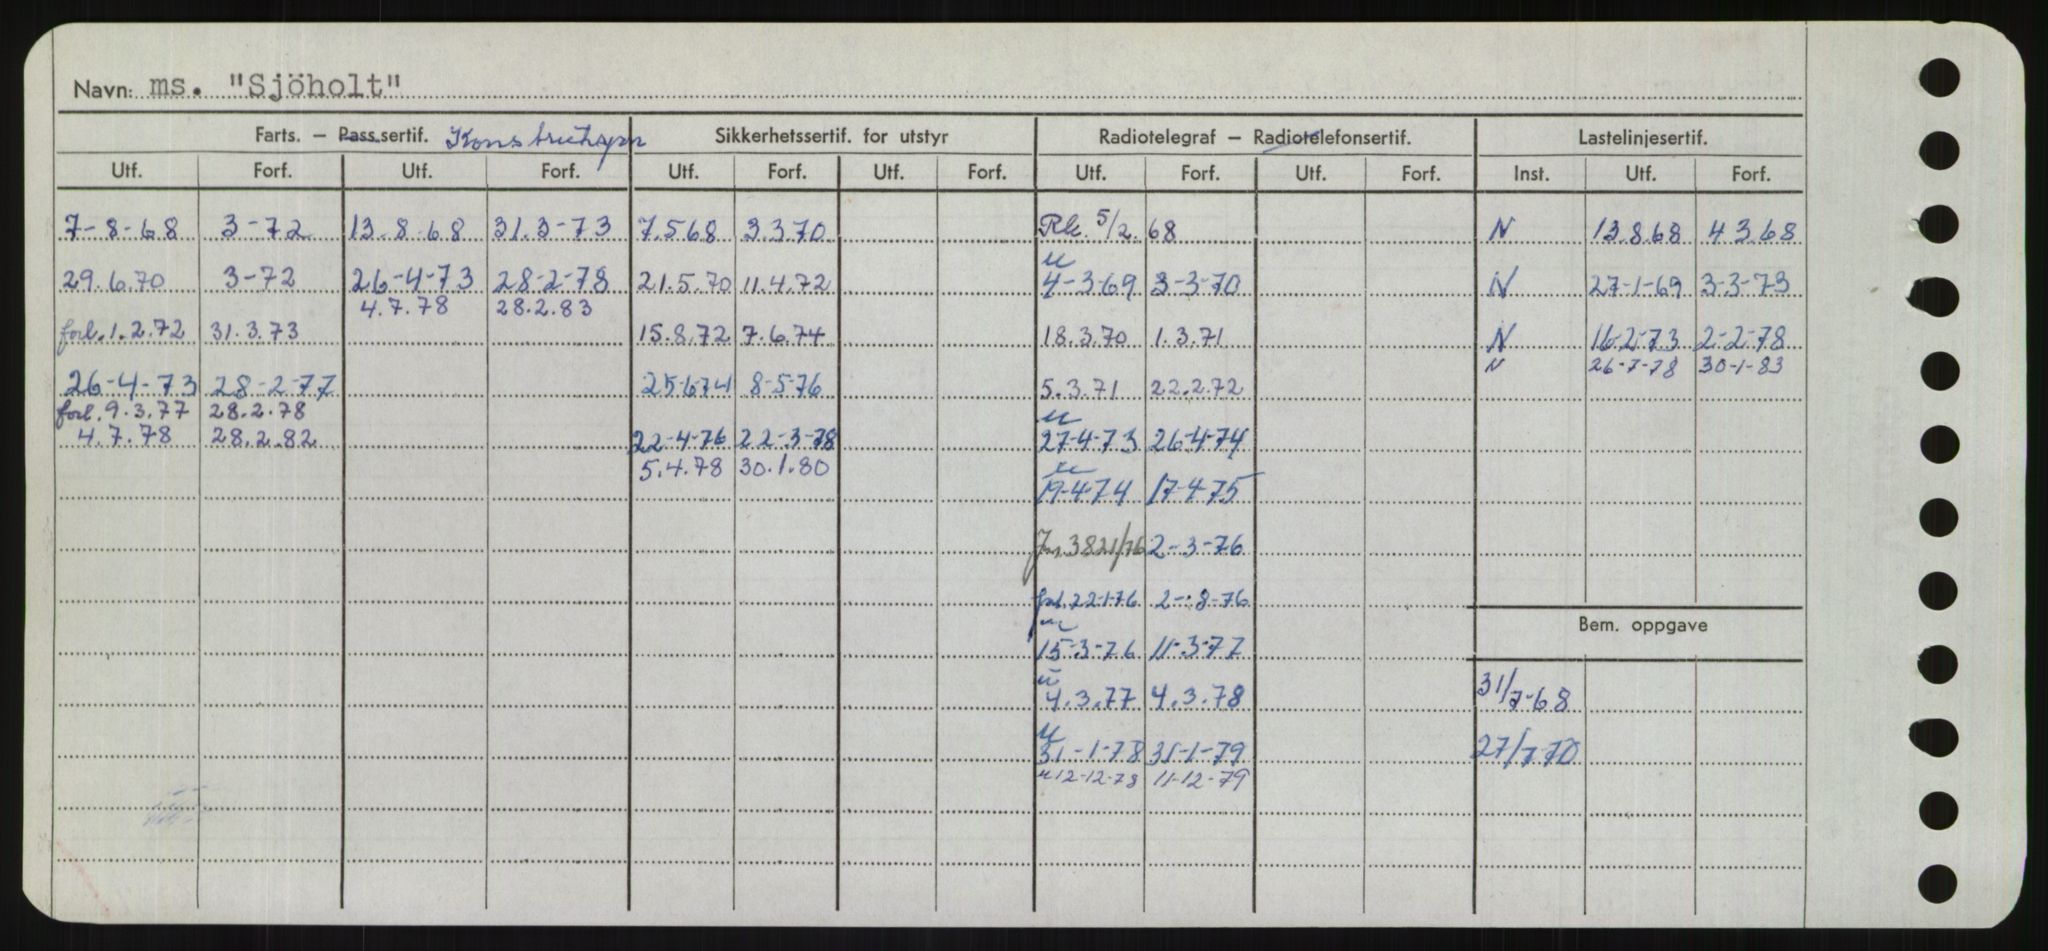 Navn: ms. "Sjöholt"
Farts. – Pass.sertif. Konstruksjon Sikkerhetssertif. for utstyr Radiotelegraf – Radiotelefonsertif. Lastelinjesertif.
Utf. Forf. Utf. Forf. Utf. Forf. Utf. Forf. Utf. Forf. Utf. Forf. Inst. Utf. Forf.
7-8-68 3-72 13.8.68 31.3-73 7.568 3.3.70 Rk. 5/2.68 N 13.8.68 4.3.68
u
29.6.70 3-72 26-4-73 28-2-78 21.5.70 11.4.72 4-3-69 3-3-70 N 27-1-69 3-3-73
4.7.78 28.2.83
forl. 1.2.72 31.3.73 15.8.72 7.6.74 18.3.70 1.3.71 N 16-2-73 2-2-78
N 26-7-78 30-1-83
26-4-73 28-2-77 25-6-74 8-5-76 5.3.71 22.2.72
forl. 9.3.77 28.2.78 u
4.7.78 28.2.82 22-4-76 22-3-78 27-4-73 26-4-74
5.4.78 30.1.80 u
19-4-74 17-4-75
Jnr. 3821/76 2-3-76
forl. 22-1-76 2-8-76 Bem. oppgave
u
15-3-76 11-3-77
u
4.3.77 4.3.78 31/7-68
u
31-1-78 31-1-79 27/7-70
u 12-12-78 11-12-79